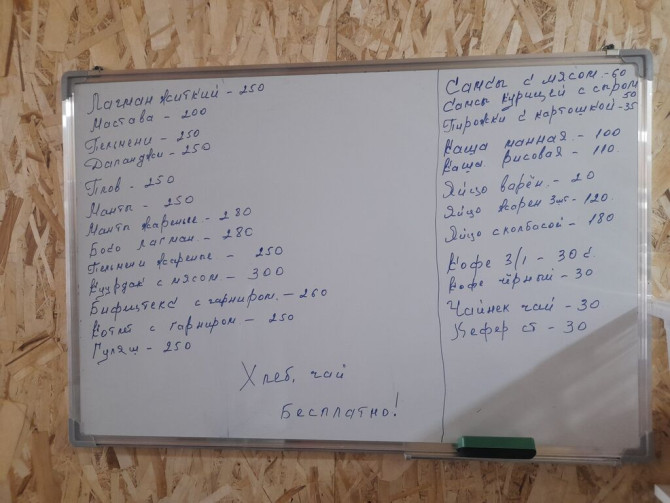 Лагман житкий - 250
Мастава - 200
Пельмени - 250
Дапанджи - 250
Плов - 250
Манты - 250
Манты жареные - 280
Босо лагман. - 280
Пельмени жареные - 250
Куурдак с мясом - 300
Бифштекс с гарниром. - 260
Котлет с гарниром. - 250
Гуляш - 250
Хлеб, чай
Бесплатно!
Самсы с мясом - 60
Самсы курицей с сыром
50
Пирожки с картошкой - 35
Каша манная - 100
Каша рисовая - 110.
Яйцо варён. - 20
Яйцо жарен 3шт - 120.
Яйцо с колбасой - 180
Кофе 3/1 - 30 с.
Кофе чёрный - 30
Чайнек чай - 30
Кефер ст - 30